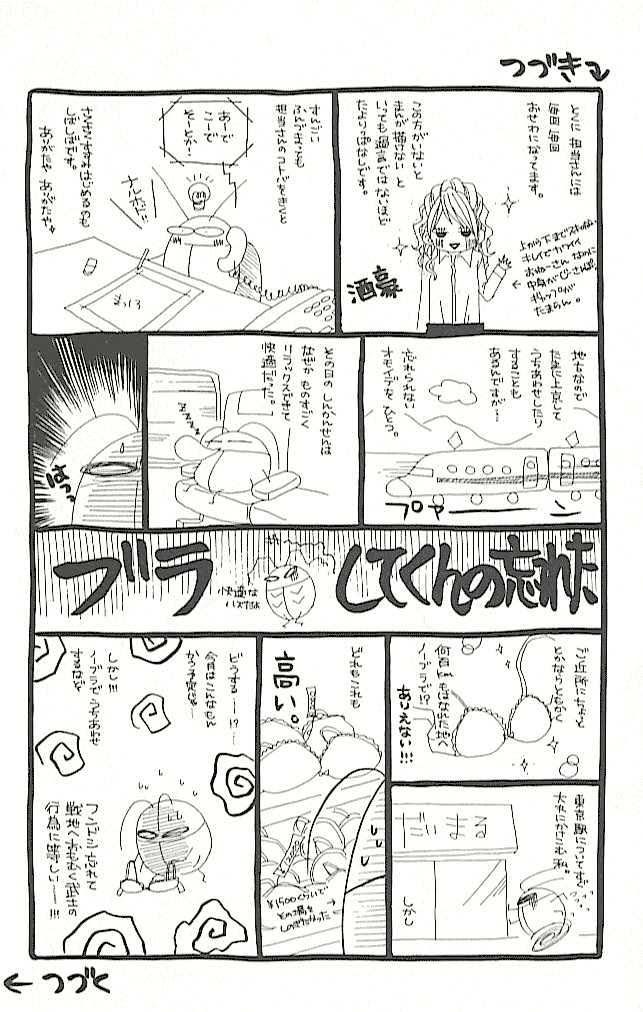 つづき
とくに 担当さんには
毎回 毎回
おせわになってます。
この方がいないと
まんが描けない と
いっても過言ではないほど
たよりっぱなしです。
上から下までスキのない
キレイでカワイイ
おねーさん なのに
中身がくだけさんぽ。
ギャップが
たまらん。
酒豪
すんごい
ふんづまっても
担当さんのコトバをきくと
あーで
こーで
そーとか…
ナルホドに!
まっ白
さくさくすすみはじめるのも
しばしばです。
ありがたや ありがたや
地方なので
たまに上京して
うちあわせしたり
することも
あるんですが…
忘れられない
オモイデをひとつ。
プァーーン
その日の しんかんせんは
なぜか ものすごく
リラックスできて
快適だった。
ZZZZZ
はっ
ブラ
してくんの忘れた
快適な
ハズだよ
ご近所にちょっと
とかならともかく
何百kmもはなれた地へ
ノーブラで!?
ありえない!!!
東京駅についてすぐ
大丸にかけこむ私。
だいまる
しかし
どれもこれも
高い。
¥1500くらいで
その場を
しのぎたかった
どうする……!?
今月はこんなもと
かう予定は…
しかし!!!
ノーブラでうちあわせ
するなど
フンドシ忘れて
戦地へおもむく武士の
行為に等しい……!!!
つづく